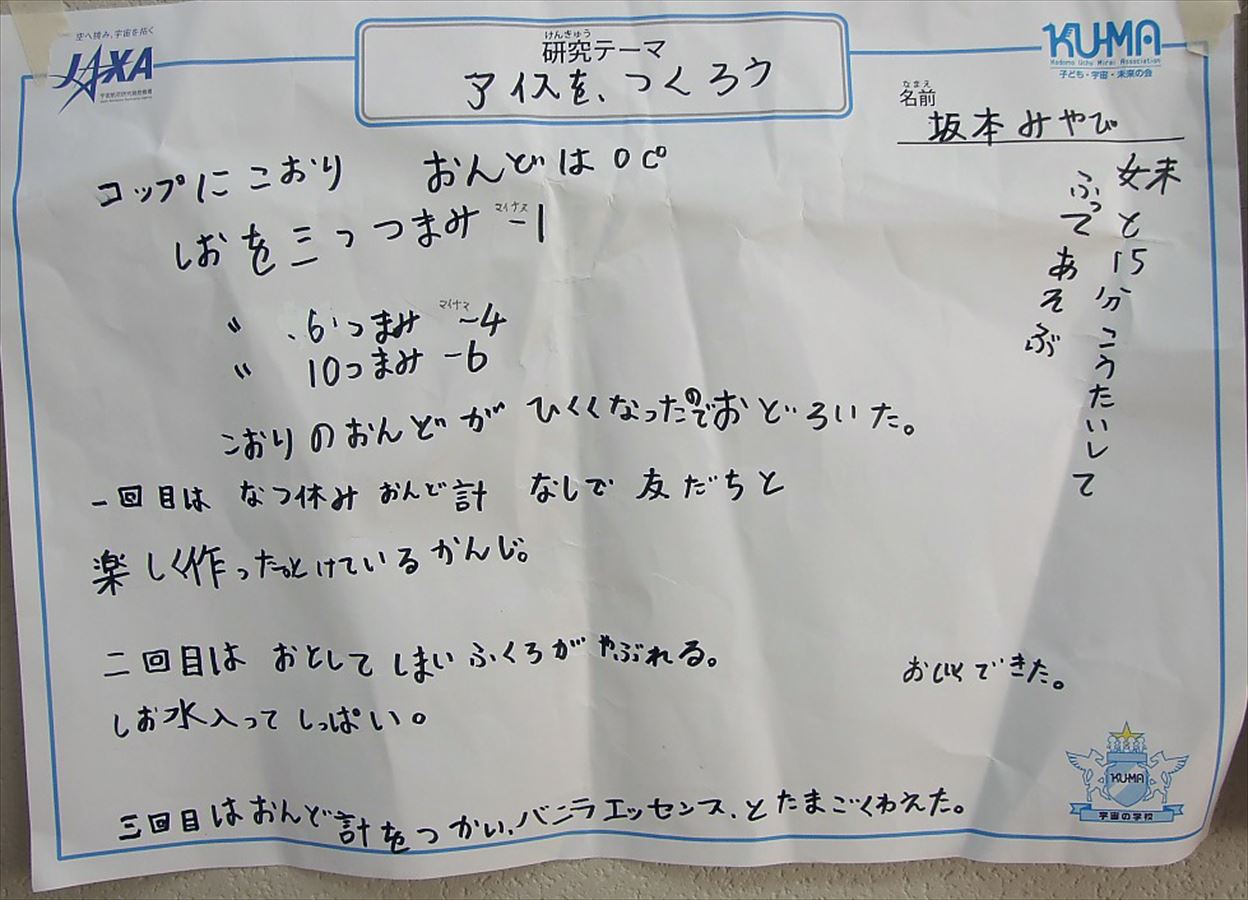 空へ挑み、宇宙を拓く
JAXA
宇宙航空研究開発機構
けんきゅう
研究テーマ
アイスを、つくろう
KU-MA
Kodomo Uchu Mirai Association
子ども・宇宙・未来の会
なまえ
名前
坂本みやび
コップにこおり おんどは0C°
しおを三つつまみ マイナス -1
〃 6つつまみ マイナス -4
〃 10つまみ -6
こおりのおんどがひくくなったのでおどろいた。
妹と15分こうたいして
ふってあそぶ
一回目は なつ休み おんど計 なしで 友だちと
楽しく作った。とけているかんじ。
二回目は おとしてしまいふくろがやぶれる。
しお水入ってしっぱい。
三回目はおんど計をつかい、バニラエッセンス、とたまごくわえた。
できた。
KU-MA
宇宙の学校